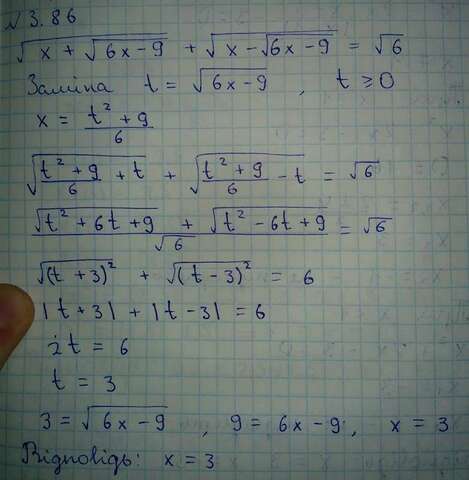 №3.86
√(x + √(6x-9)) + √(x - √(6x-9)) = √6
Заміна t = √(6x-9) , t ≥ 0
x = (t² + 9)/6
√((t² + 9)/6 + t) + √((t² + 9)/6 - t) = √6
(√(t² + 6t + 9) + √(t² - 6t + 9))/√6 = √6
√((t + 3)²) + √((t - 3)²) = 6
|t + 3| + |t - 3| = 6
2t = 6
t = 3
3 = √(6x-9) , 9 = 6x-9, x = 3
Відповідь: x = 3